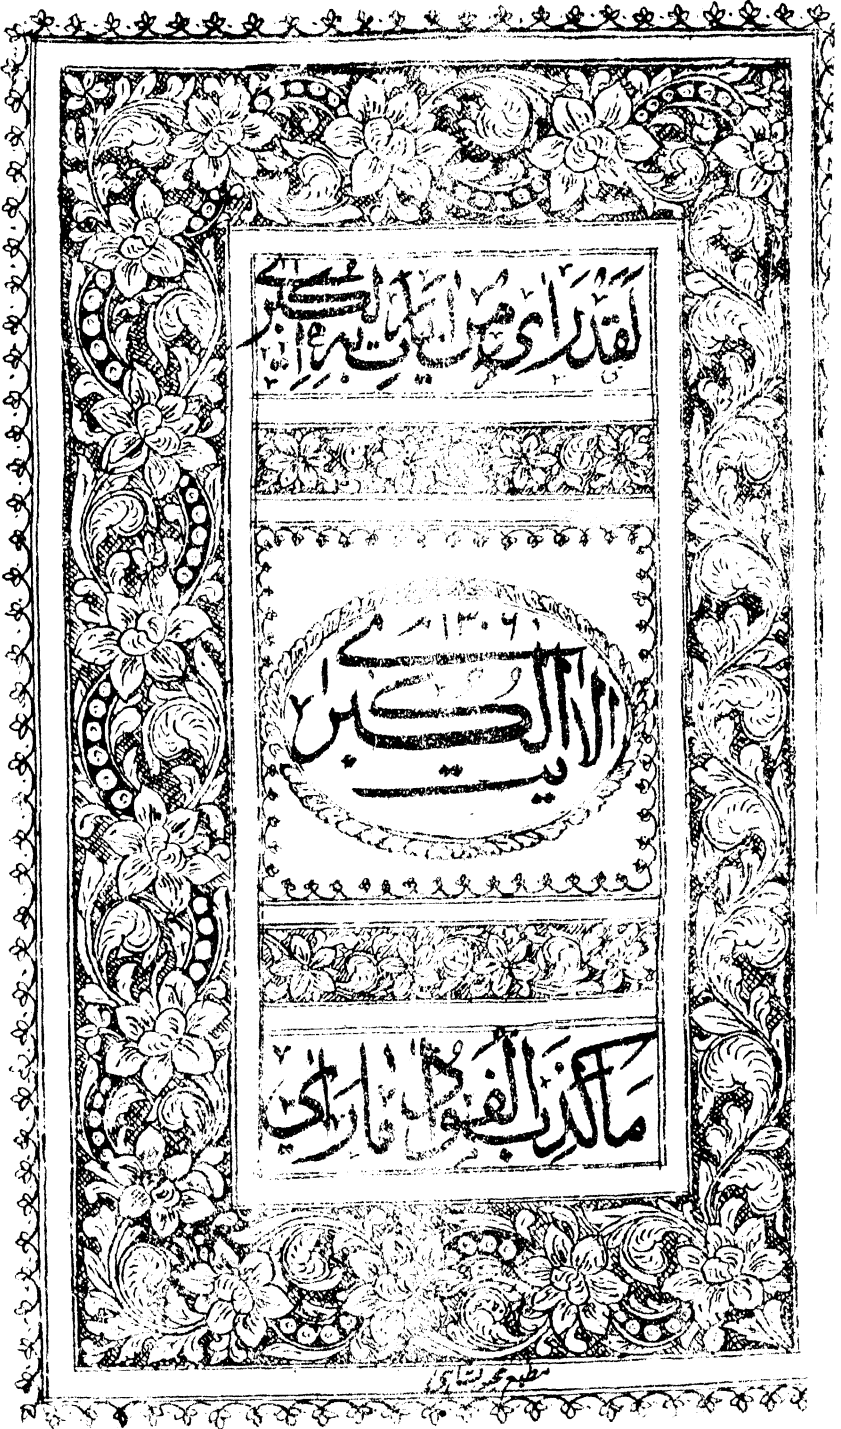 لَقَدْ رَاٰى مِنْ اٰيَاتِ رَبِّهِ الْكُبْرٰى
١٣٠٦
الايت الكبرى
مَا كَذَبَ الْفُؤَادُ مَا رَاٰى
مطبع محمد